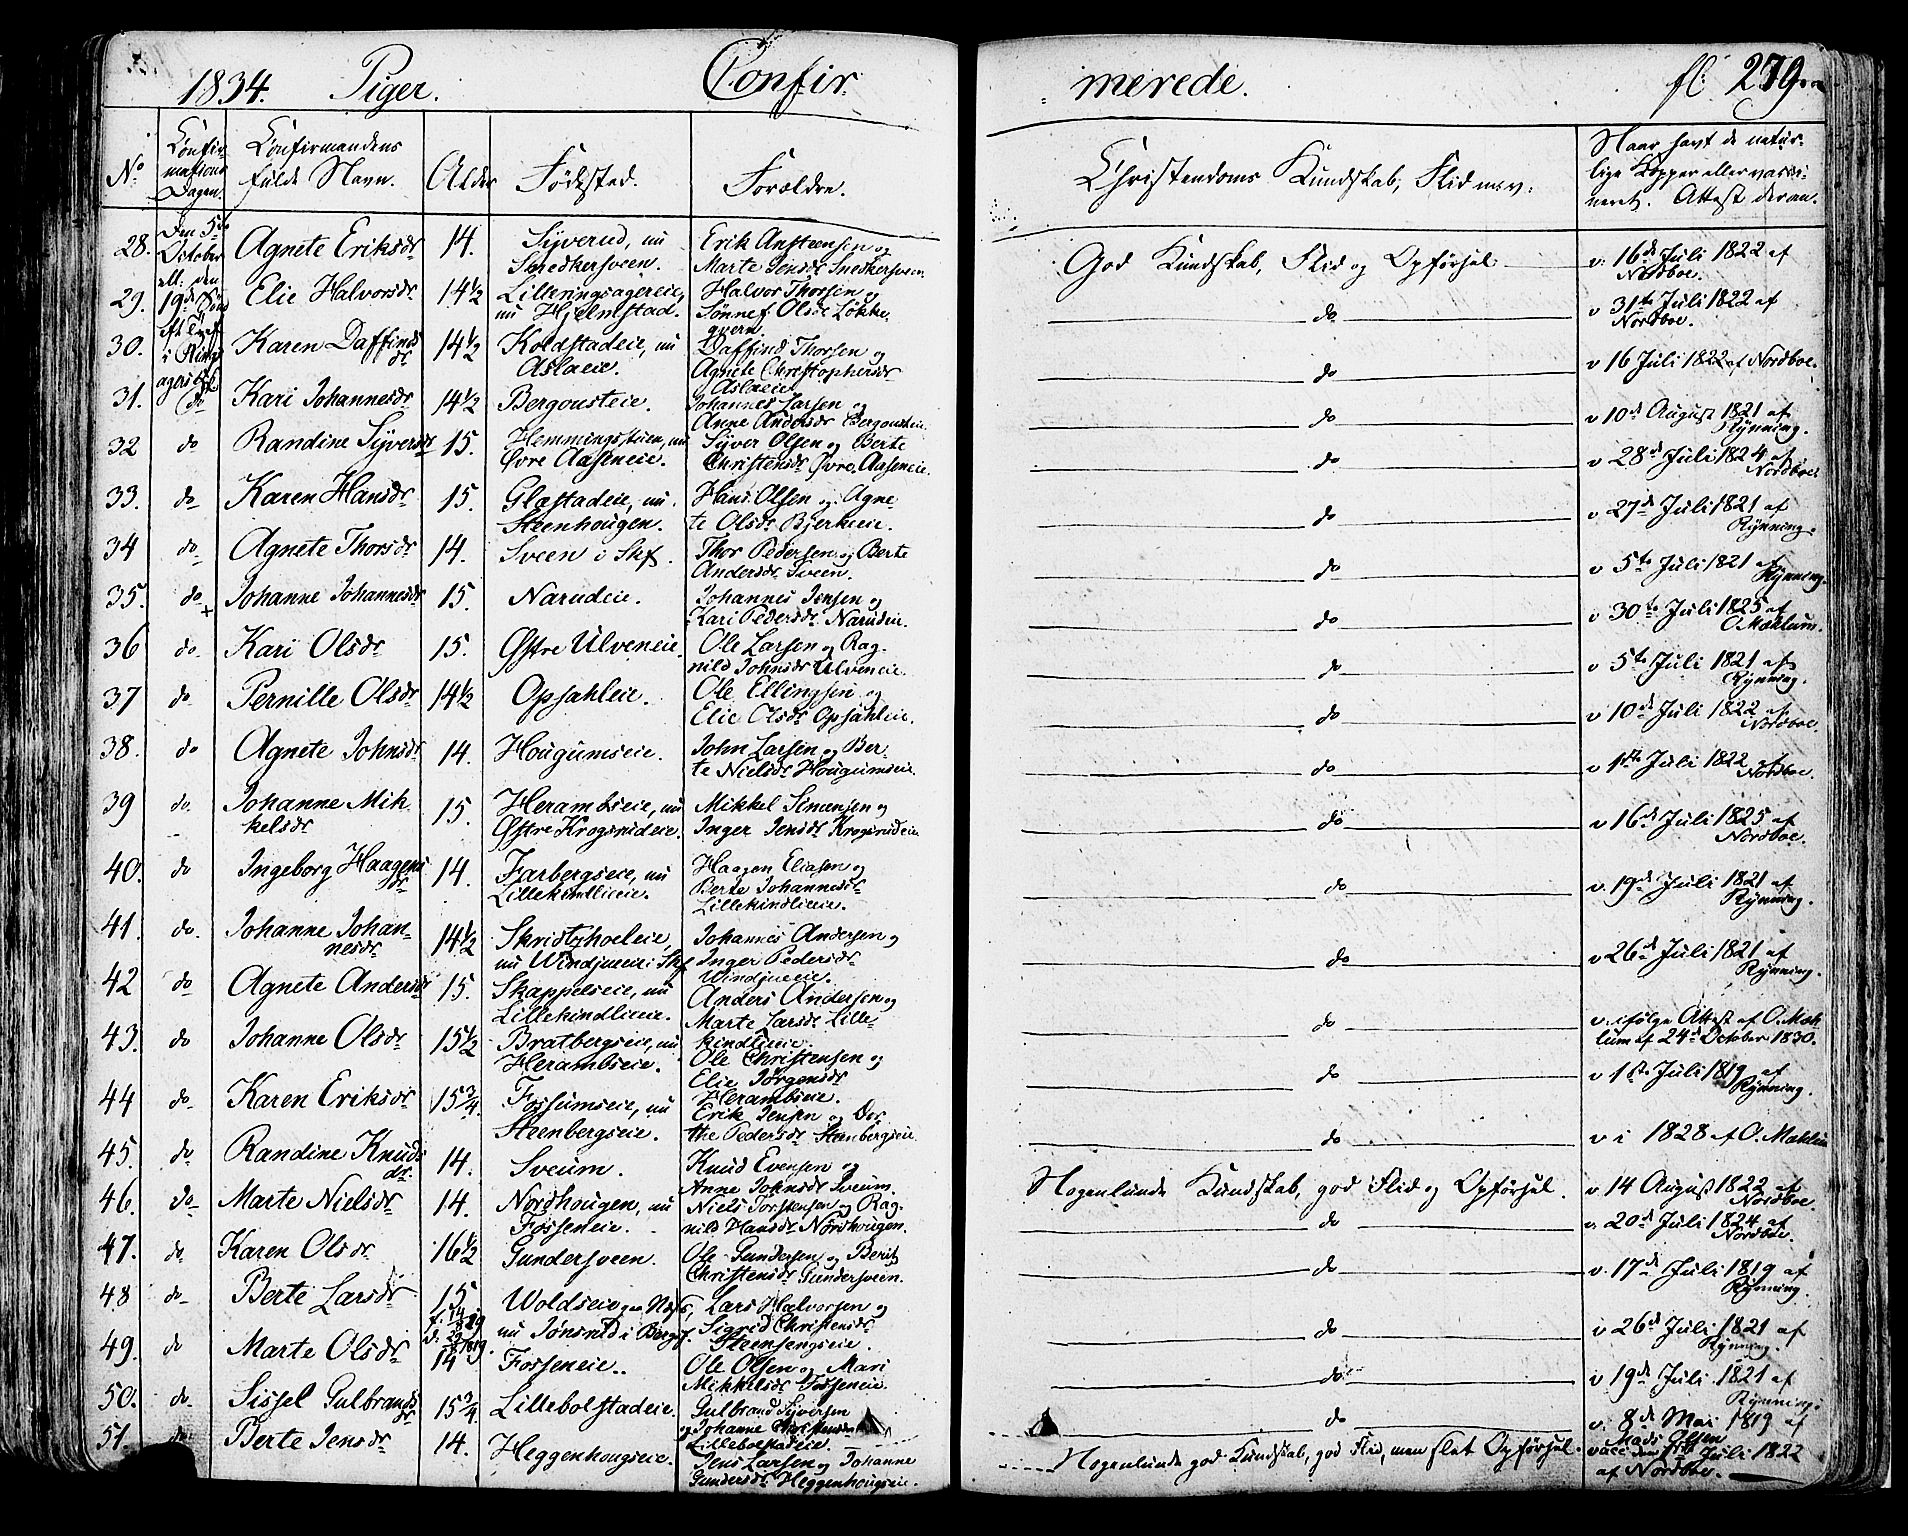 1834. Piger. Confirmerede. fl. 279
No
Confirmations Dagen.
Confirmandens fulde Navn.
Alder
Födested.
Forældre.
Christendoms Kundskab, Flid m. v.
Naar havt de naturlige Kopper eller vaccineret. Attest derom.
28. Den 5te October ell. den 19de Sön Agnete Eriksdr 14. Syverud, nu Snedkersveen. Erik Ansteensen og Marte Jensdr Snedkersveen God Kundskab, Flid og Opförsel v. 16de Juli 1822 af Nordboe.
29. Elie Halvorsdr 14½ Lilleringsagereie, nu Hjelmstad. Halvor Thorsen og Sönnef Olsdr Løkkegvern do v 31te Juli 1822 af Nordboe.
30. Karen Daffinds dr 14½ Koldstadeie, nu Aslaeie. Daffind Thorsen og Agnete Christophersdr Aslaeie do v 16 Juli 1822 af Nordboe.
31. do Kari Johannesdr 14½ Bergousteie. Johannes Larsen og Anne Andersdr Bergousteie do v 10de August 1821 af Rynning.
32 do Randine Syversdr 15. Hemmingsteien, nu Øvre Aaseneie. Syver Olsen og Berte Christensdr Øvre Aaseneie. do v 28de Juli 1824 af Nordboe
33. do Karen Hansdr 15. Glæstadeie, nu Steenhougen. Hans Olsen og Agnete Olsdr Bjerkeeie. do v 27de Juli 1821 af Rynning.
34 do Agnete Thorsdr 14. Sveen i Skf. Thor Pedersen og Berte Andersdr Sveen. do v 5te Juli 1821 af Rynning.
35. do Johanne Johannesdr 15. Narudeie. Johannes Jensen og Kari Pedersdr Narudeie. do v 30te Juli 1825 af O. Mæhlum.
36 do Kari Olsdr 15. Østre Ulveneie. Ole Larsen og Ragnild Johnsdr Ulveneie do v 5te Juli 1821 af Rynning.
37 do Pernille Olsdr 14½ Opsahleie. Ole Ellingsen og Elie Olsdr Opsahleie. do v 10de Juli 1822 af Nordboe.
38. do Agnete Johnsdr 14. Hougumseie. John Larsen og Berte Nielsdr Hougumseie. do v 1ste Juli 1822 af Nordboe.
39 do Johanne Mikkelsdr 15. Herambseie, nu Østre Krogsrudeie. Mikkel Simensen og Inger Jensdr Krogsrudeie do v 16de Juli 1825 af Nordboe.
40. do Ingeborg Haagens dr 14. Farbergseie, nu Lillekindlieie. Haagen Eliasen og Berte Johannesdr Lillekindlieie. do v. 19de Juli 1821 af Rynning.
41. do. Johanne Johannesdr 14½ Skristjhoeleie, nu Windjueie i Skf. Johannes Andersen og Inger Pedersdr Windjueie. do v 26de Juli 1821 af Rynning.
42 do Agnete Andersdr 15. Skappelseie, nu Lillekindlieie. Anders Andersen og Marte Larsdr Lillekindlieie. do v. ifölge Attest af O. Mæhlum af 24de October 1830.
43. do Johanne Olsdr 15½ Bratbergseie, nu Herambseie. Ole Christensen og Elie Jörgensdr Herambseie. do v 1ste Juli 1819 af Rynning.
44 do Karen Eriksdr 15¾. Fossumseie, nu Steenbergseie. Erik Jensen og Dorthe Pedersdr Steenbergseie do v i 1828 af O. Mæhlum
45. do Randine Knuds dr. 14. Sveum. Knud Evensen og Anne Johnsdr Sveum. Nogenlunde Kundskab, god Flid og Opförsel. v 14 August 1822 af Nordboe.
46. Do Marte Nielsdr 14. Nordhougen, nu Fosseneie. Niels Torstensen og Ragnild Hansdr Nordhougen. do v. 20de Juli 1824 af Nordboe.
47. do Karen Olsdr 16½ Gundersveen. Ole Gundersen og Berit Christensdr Gundersveen. do v. 17de Juli 1819 af Rynning.
48 do Berte Larsdr 15 Woldseie paa Næs, nu Jönsrud i Bergf. Lars Halvorsen og Sigrid Christensdr Steensengseie. do v 26de Juli 1821 af Rynning.
49. do Marte Olsdr 14 Fosseneie. Ole Olsen og Mari Mikkelsdr Fosseneie do v 19de Juli 1821 af Rynning.
50. do Sissel Gulbrands dr 15¾ Lillebolstadeie. Gulbrand Syversen og Johanne Christensdr Lillebolstadeie do v. 8de Mai 1819 af Mads Olsen
51. do Berte Jensdr 14. Heggenhougseie. Jens Larsen og Johanne Gundersdr Heggenhougseie. Nogenlunde god Kundskab, god Flid, men slet Opförsel. vacc. den Juli 1822 af Nordboe.